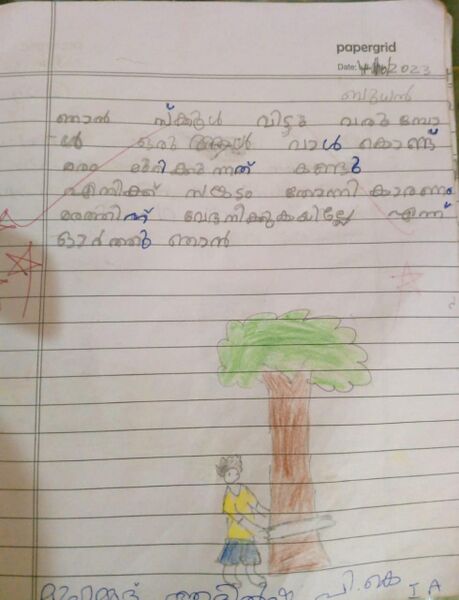 papergrid
Date: 4/10/2023
ബുധൻ
ഞാൻ സ്ക്കൂൾ വിട്ടു വരുമ്പോ
ൾ ഒരു ആൾ വാൾ കൊണ്ട്
മരം മുറിക്കുന്നത് കണ്ടു
എനിക്ക് സങ്കടം തോന്നി കാരണം
മരത്തിന്ന് വേദനിക്കുകയില്ലേ എന്ന്
ഓർത്തു ഞാൻ
മുഹമ്മദ് പി.കെ I A